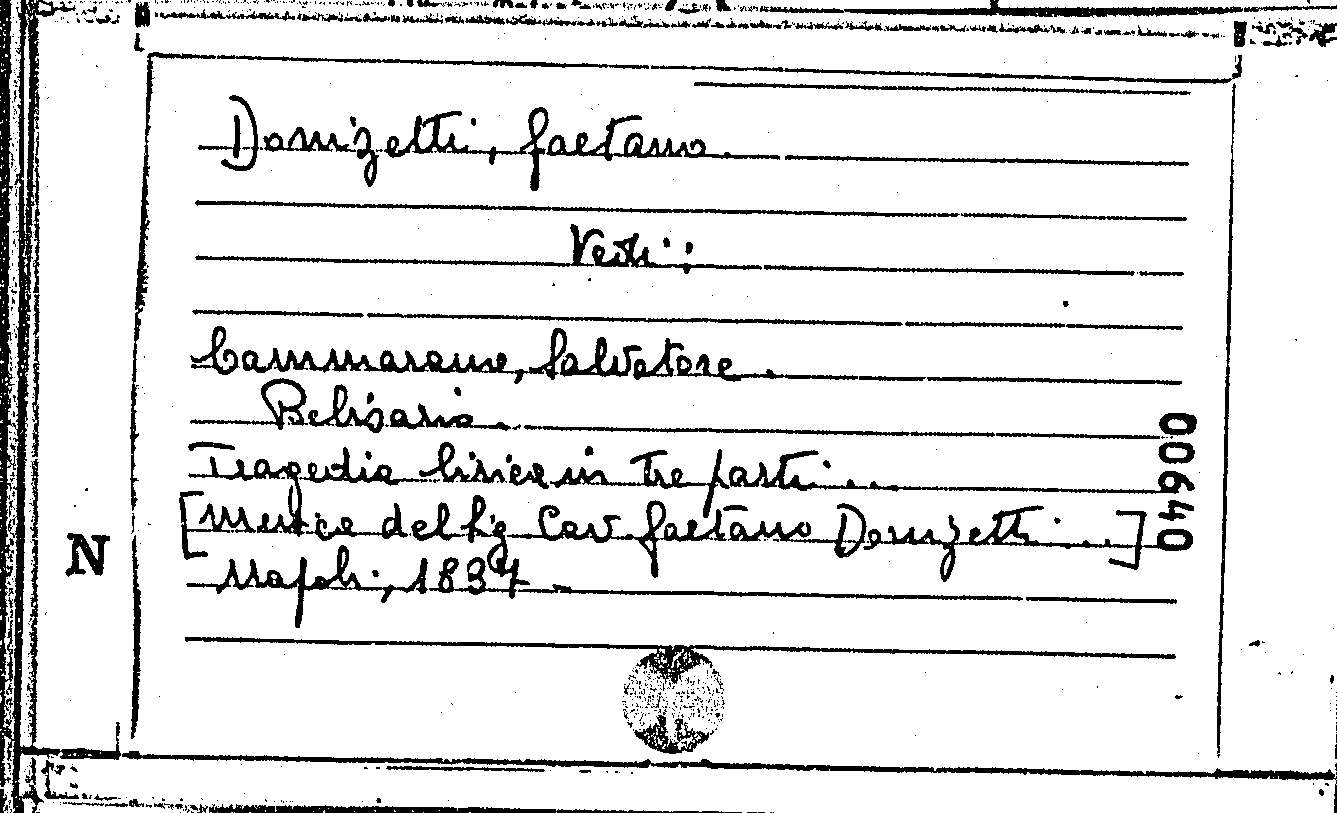 Donizetti, Gaetano.
Vedi:
Cammarano, Salvatore.
Belisario.
Tragedia lirica in tre parti...
[Musica del Sig Cav. Gaetano Donizetti....]
Napoli, 1837 -
N
009640